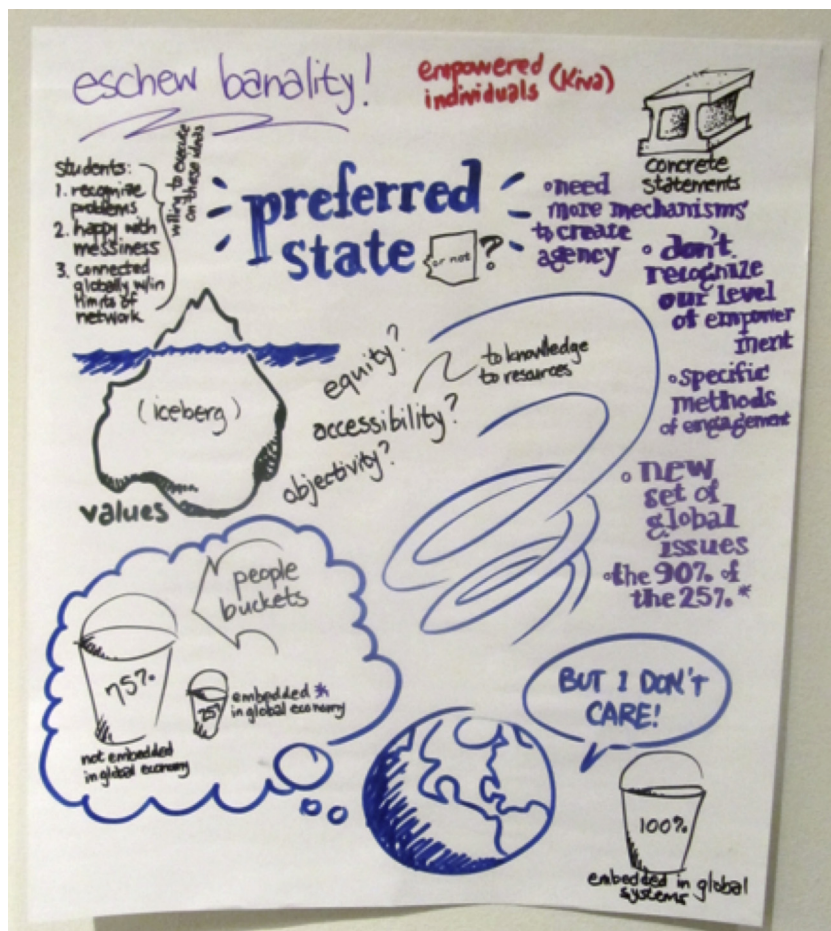 eschew banality!
empowered
individuals (Kiva)
concrete
statements
students:
1. recognize
problems
2. happy with
messiness
3. connected
globally w/in
limits of
network
willing to execute
on these ideas
preferred
state
or not ?
• need
more mechanisms
to create
agency
• don't
recognize
our level
of empower
ment
• specific
methods
of engagement
• new
set of
global
issues
• the 90% of
the 25% *
(iceberg)
values
equity?
accessibility?
objectivity?
to knowledge
to resources
people
buckets
75%
not embedded
in global economy
25
embedded *
in global economy
BUT I DON'T
CARE!
100%
embedded in global
systems